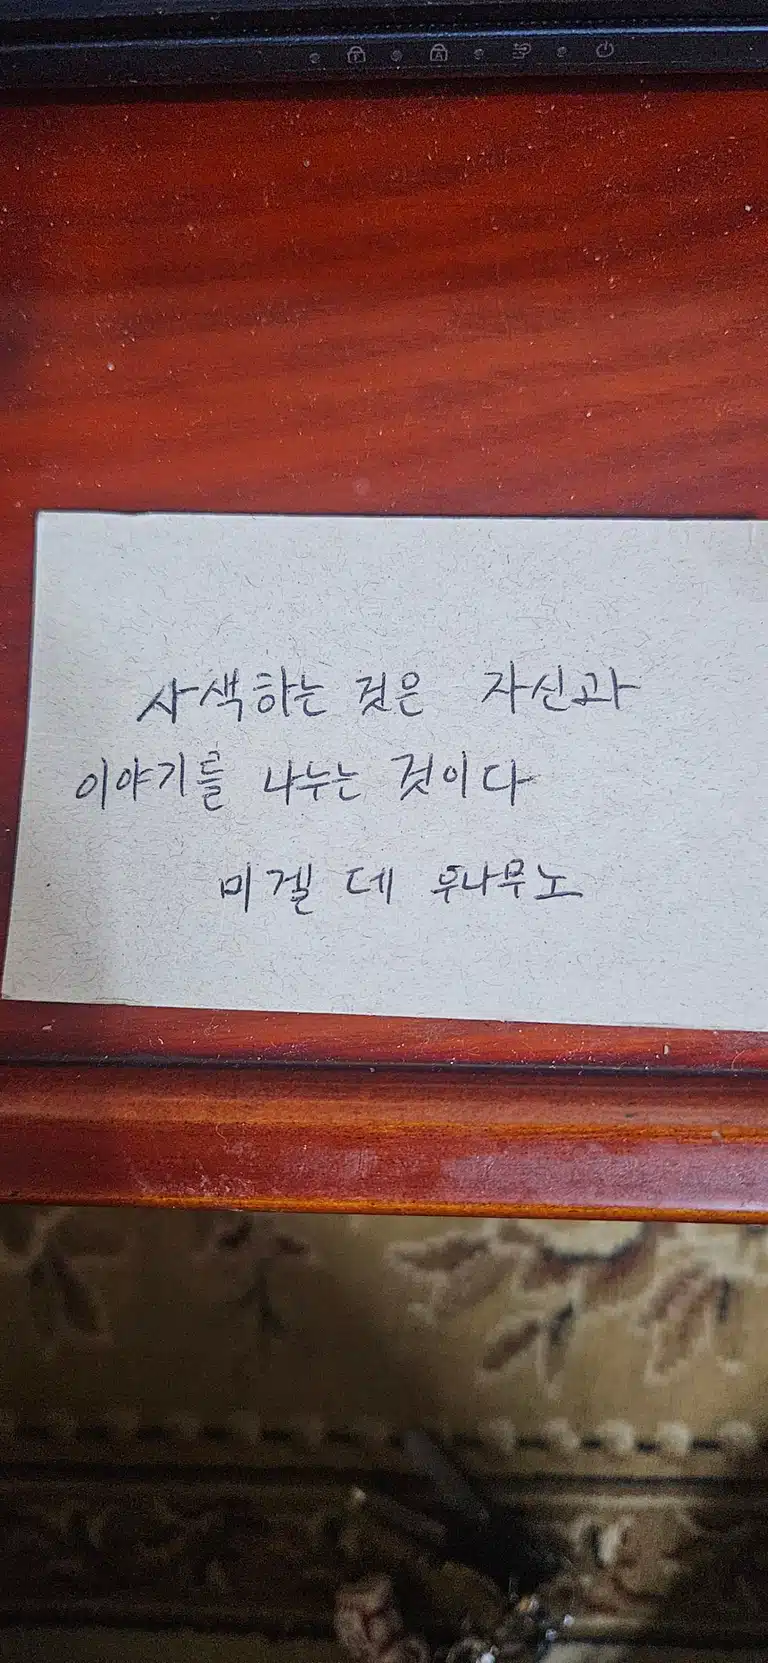 사색하는 것은 자신과
이야기를 나누는 것이다
미겔 데 우나무노